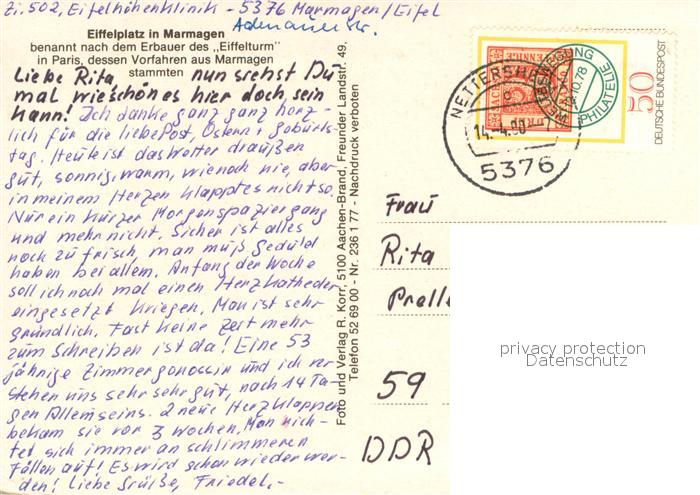 Zi. 502, Eifelhöhenklinik - 5376 Marmagen/Eifel
Adenauer Str.
Eiffelplatz in Marmagen
benannt nach dem Erbauer des „Eiffelturm"
in Paris, dessen Vorfahren aus Marmagen
stammten
Liebe Rita, nun siehst Du
mal wie schön es hier doch sein
kann! Ich danke ganz ganz herz-
lich für die liebe Post, Ostern + Geburts-
tag. Heute ist das Wetter draußen
gut, sonnig, warm, wie noch nie, aber
in meinem Herzen klappt es nicht so.
Nur ein kurzer Morgenspaziergang
und mehr nicht. Sicher ist alles
noch zu frisch, man muß Geduld
haben bei allem. Anfang der Woche
soll ich noch mal einen Herzkatheder
eingesetzt kriegen. Man ist sehr
gründlich. Fast keine Zeit mehr
zum Schreiben ist da! Eine 53
jährige Zimmergenossin und ich ver-
stehen uns sehr sehr gut, nach 14 Ta-
gen Alleinseins. 2 neue Herzklappen
bekam sie vor 3 Wochen. Man rich-
tet sich immer an schlimmeren
Fällen auf! Es wird schon wieder wer-
den! Liebe Grüße, Friedel.-
Foto und Verlag R. Korr, 5100 Aachen-Brand, Freunder Landstr. 49,
Telefon 52 69 00 - Nr. 236 1 77 - Nachdruck verboten
50
DEUTSCHE BUNDESPOST
PHILATELIE
10.78
NETTERSHEIM
14.-4.90
5376
Frau
Rita
Prell
59
DDR
privacy protection
Datenschutz